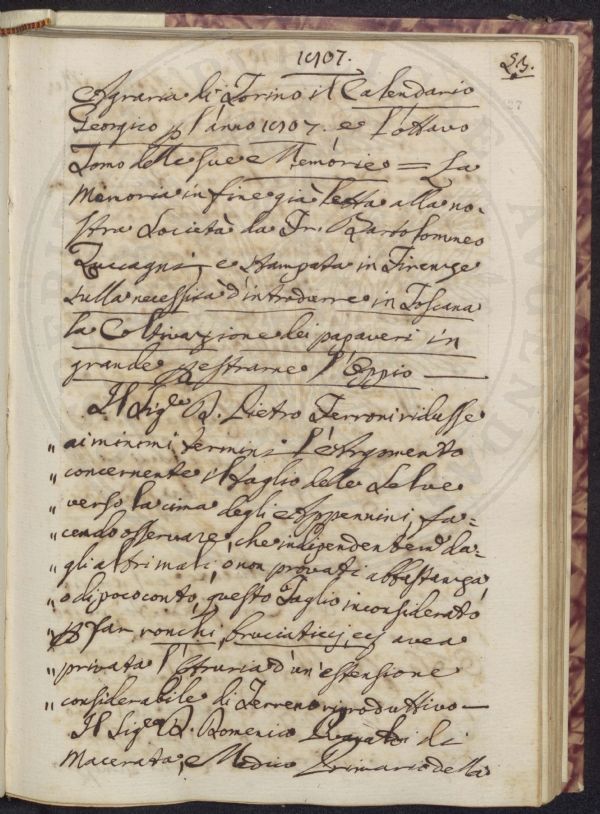 1807.
23.
27
Agraria di Torino il Calendario
Georgico p l'anno 1807. e l'ottavo
Tomo delle sue Memorie = La
Memoria in fine già letta alla no-
stra Società da Dr. Bartolommeo
Zuccagni, e stampata in Firenze
sulla necessità d'introdurre in Toscana
la Coltivazione dei papaveri in
grande p estrarne l'Oppio —
Il Sigre D. Pietro Ferroni ridusse
" ai minomi termini l'Argomento
" concernente il taglio delle Selve
" verso la cima degli Appennini, fa=
" cendo osservare, che indipendentemte da=
" gli altri mali, o non provati abbastanza,
" o di poco conto, questo Taglio inconsiderato
" p far ronchi, bruciaticcj, ec avea
" privata l'Etruria d'un'estensione
" considerabile di Terreno riproduttivo —
Il Sigre D. Domenico di
Macerata, e Medico Primario della